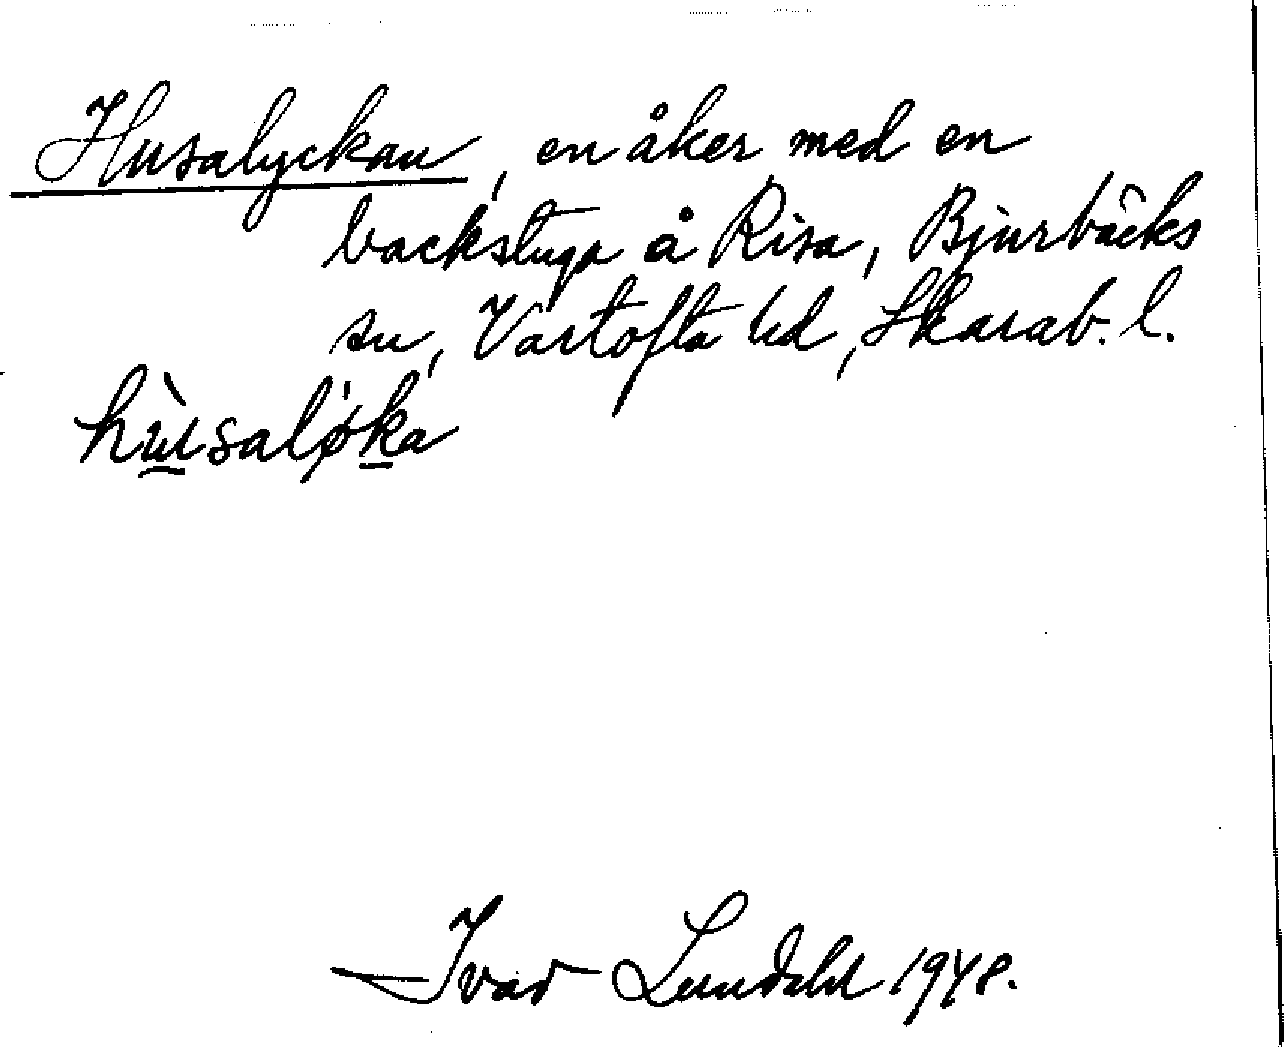 Husalyckan, en åker med en
backstuga å Risa, Bjurbäcks
sn, Vartofta hd, Skarab. l.
hùsaløka
Ivar Lundahl 1948.